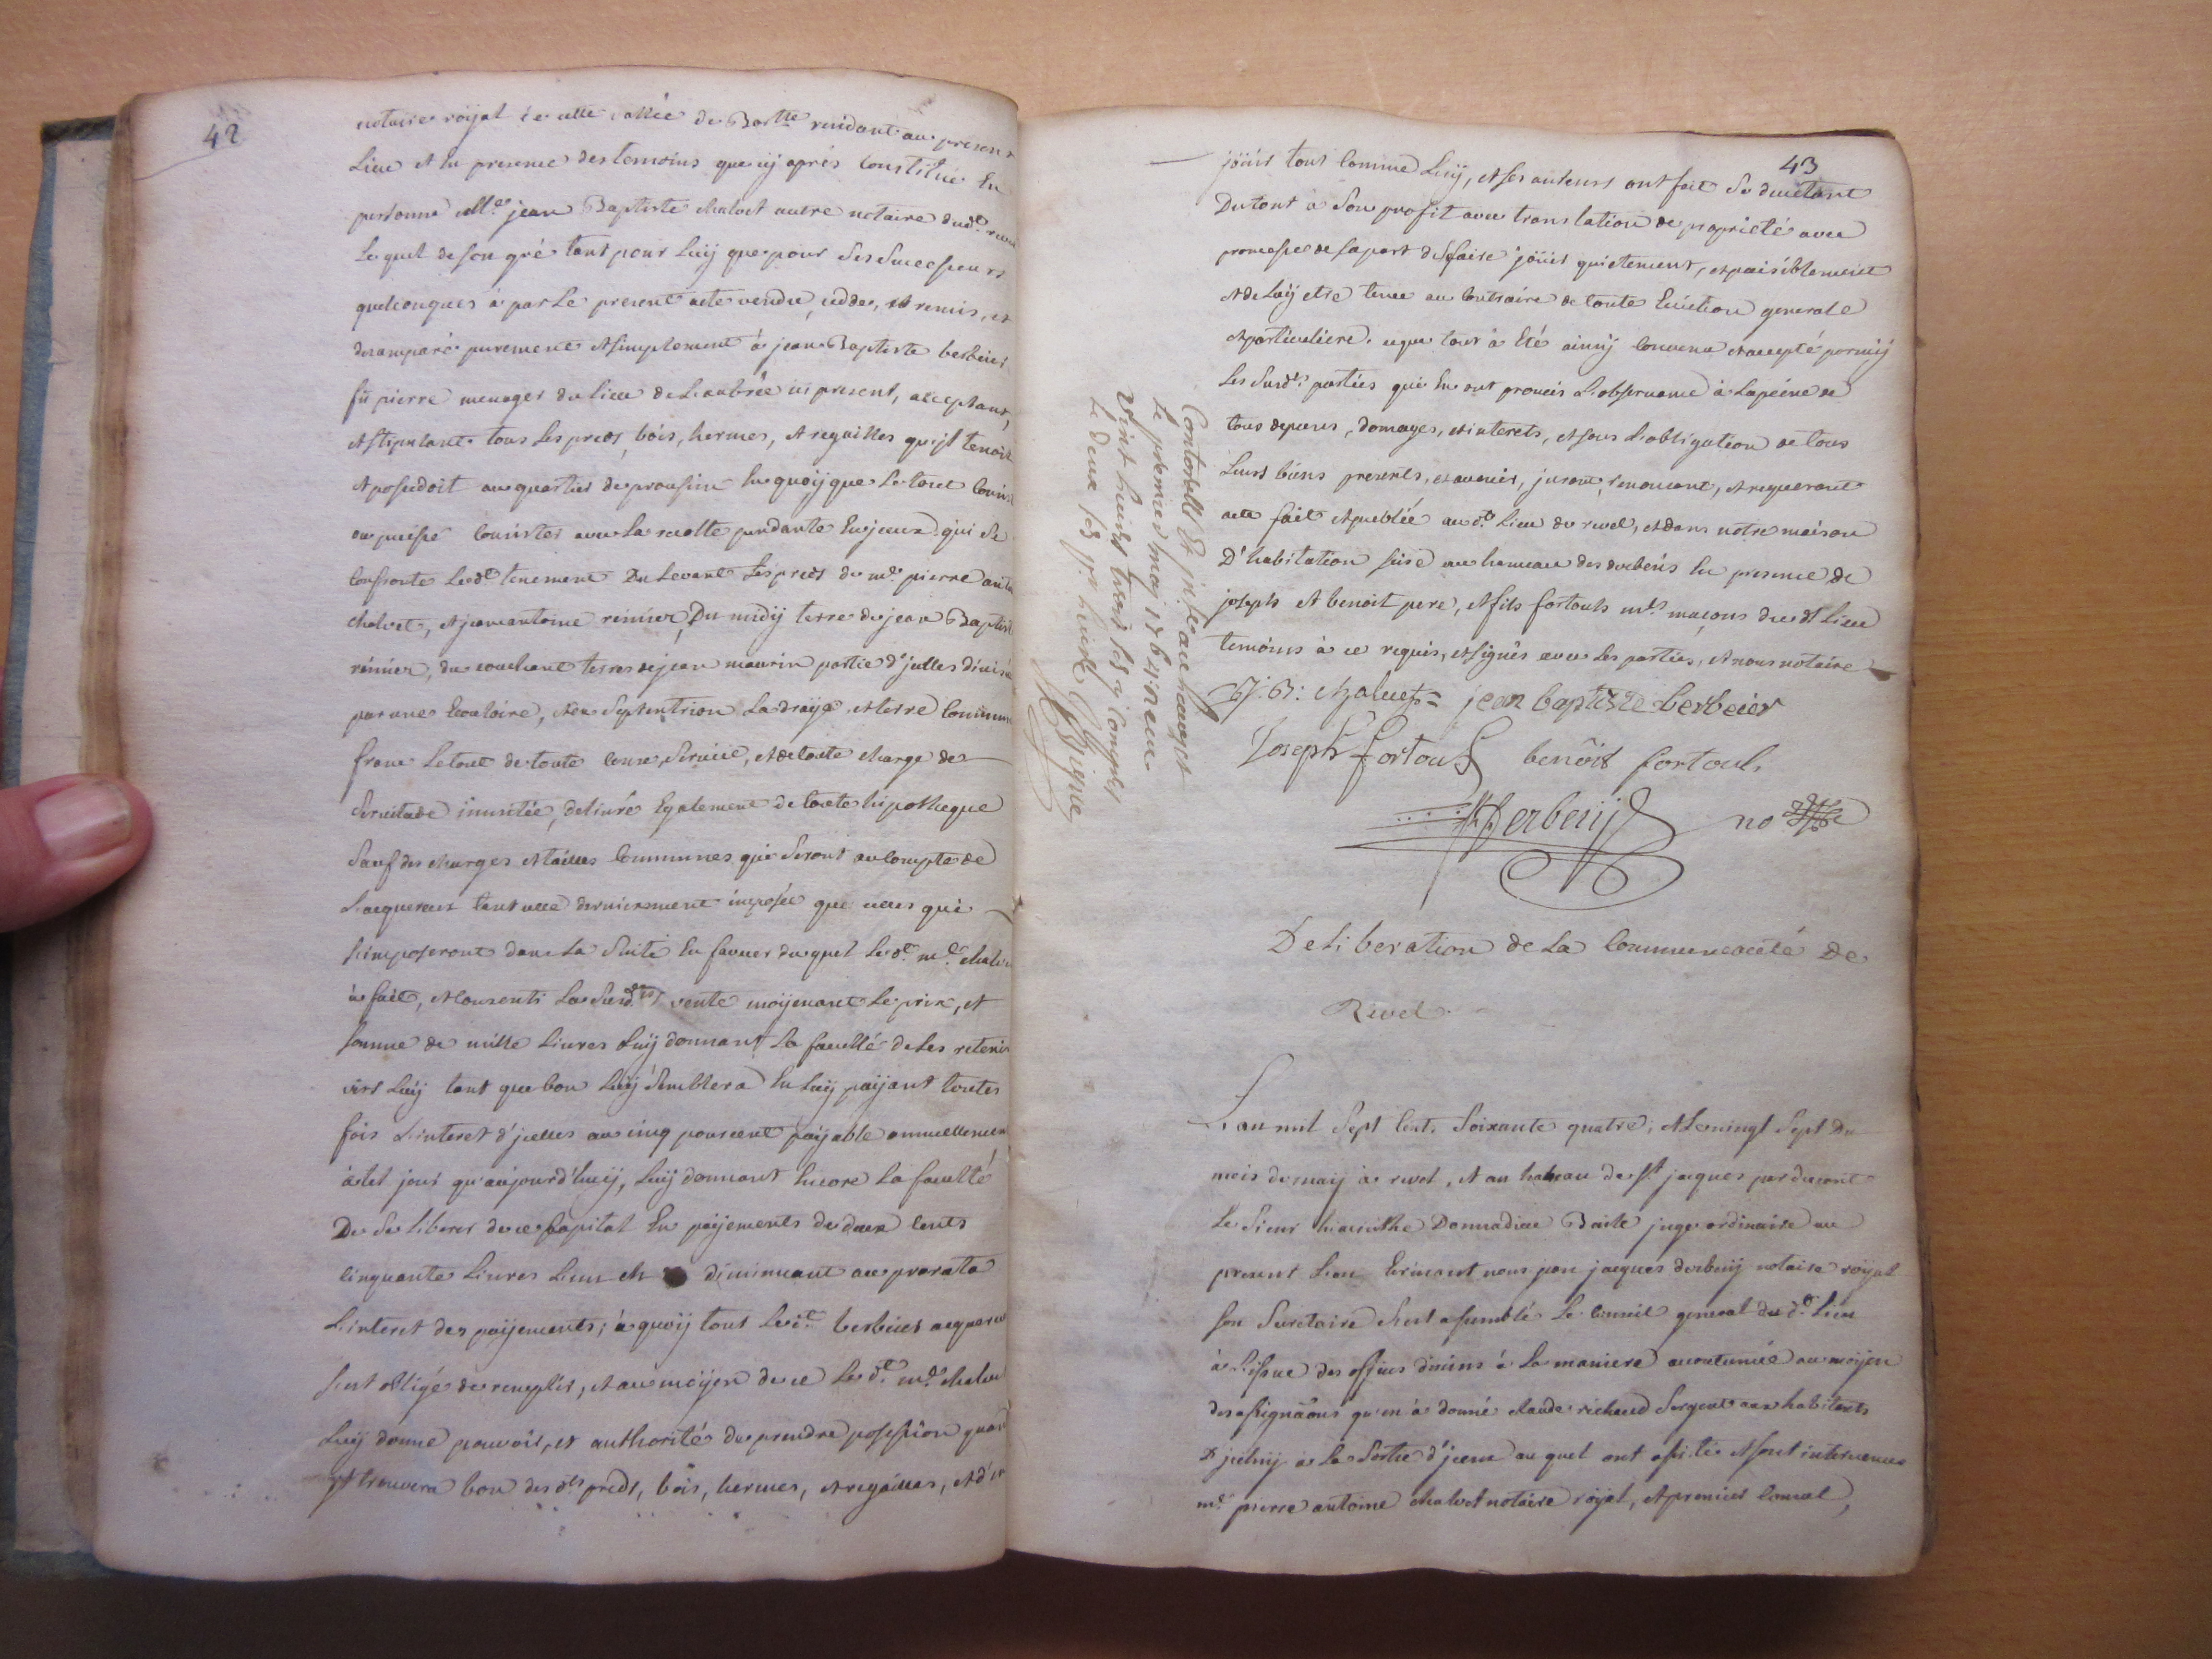 42
notaire röyal de cette vallée de Bartte residant au present
Lieu et En presence des temoins que cy aprés Constitué En
personne Me. jean Baptiste chalvet autre notaire dud.
Le quel de son gré tant pour Luÿ que pour Ses Successeurs
quelconques à par Le present acte vendu, cedde, et remis, et
desamparé purement et simplement à jean Baptiste berbeier
fû pierre menager du lieu de Laubrée ici present, acceptant,
et stipulant tous Les preds, bois, hermes, et regailles qu'jl tenoit
et possedoit au quartier de prousiur En quoÿ que Le tout
ou puisse Consister avec La recolte pendante En jceux qui Se
Confronte Led. tenement Du Levant Les preds de me. pierre
chalvet, et jean antoine renier, Du midÿ terre de jean Baptist
rénier, du couchant terres de jean maurin partie d'jcelles
par une Ecouloire, et du Septentrion La draÿe et terre Commune
franc Le tout de toute Cense, Service, et de toute charge de
Servitude inusitée, delivré Egalement de toute hipotheque
Sauf des charges et tailles Communes qui Seront au Compte de
L'acquereur tant celle dernierement imposée que celles qui
s'imposeront dans La Suite En faveur du quel Led. me. chalvet
à fait, et Consenti La Susd. vente moÿenant Le prix, et
somme de mille Livres Luÿ donnant La faculté de Les retenir
vers Luÿ tant que bon Luÿ Semblera En Luÿ paÿant toutes
fois L'interet d'jcelles au cinq pourcent paÿable annuellement
à tel jour qu'aujourd'huÿ, Luÿ donnant Encore La faculté
De Se Liberer de ce Capital En paÿements de deux Cents
Cinquante Livres diminuant au prorata
L'interet des paÿements; à quoÿ tout Led. berbeier acquereur
s'est obligé de remplir, et au moÿen de ce Led. me. chalvet
Luÿ donne pouvoir, et authorité de prendre possession quand
jl trouvera bon des dts preds, bois, hermes, et regailles, et d'en
43
jöüir tout Comme Luÿ, et ses auteurs ont fait Se devetant
Du tout à Son profit avec translation de proprieté avec
promesse de sa part de faire jöüir quietement, et paisiblement
et de Luÿ etre tenu au Contraire de toute Eviction generale
et particuliere. ce que tout à Eté ainsÿ Convenu et accepté parmÿ
Les Susdts. parties qui En ont promis L'observance à La peine de
tous depens, domages, et interets, et sous L'obligation de tous
Leurs biens presents, et avenir, jurant, renoncant, et requerant
acte fait et publié au d. Lieu de revel, et dans notre maison
D'habitation Size au hameau des derbeis En presence de
joseph et benoit pere, et fils fortouls mes. maçons du dt Lieu
temoins à ce requis, et signés avec Les parties, et nous notaire
J: B: chalvet jean baptiste berbeier
Joseph fortoul benoit fortoul
Derbeÿ no
Controllé
Le premier maÿ 1764 reçu
vint huit
Le deux
Digne
Deliberation de La Communauté de
Revel
L'an mil Sept Cent Soixante quatre, et Le vingt Sept Du
mois de maÿ à revel, et au hameau de st jacques par devant
Le Sieur hiacinthe Donnadieu Baile juge ordinaire au
present Lieu Ecrivant nous jean jacques derbeÿ notaire röyal
son Secretaire s'est assemblé Le Conseil general du d. Lieu
à L'issue des offices divins à La maniere accoutumée au moÿen
des assignãons qu'en à donné claude richaud Sergent aux habitants
D'jceluÿ à La Sortie d'jceux au quel ont assisté et sont intervenus
me. pierre antoine chalvet notaire röyal, et premier Consul,